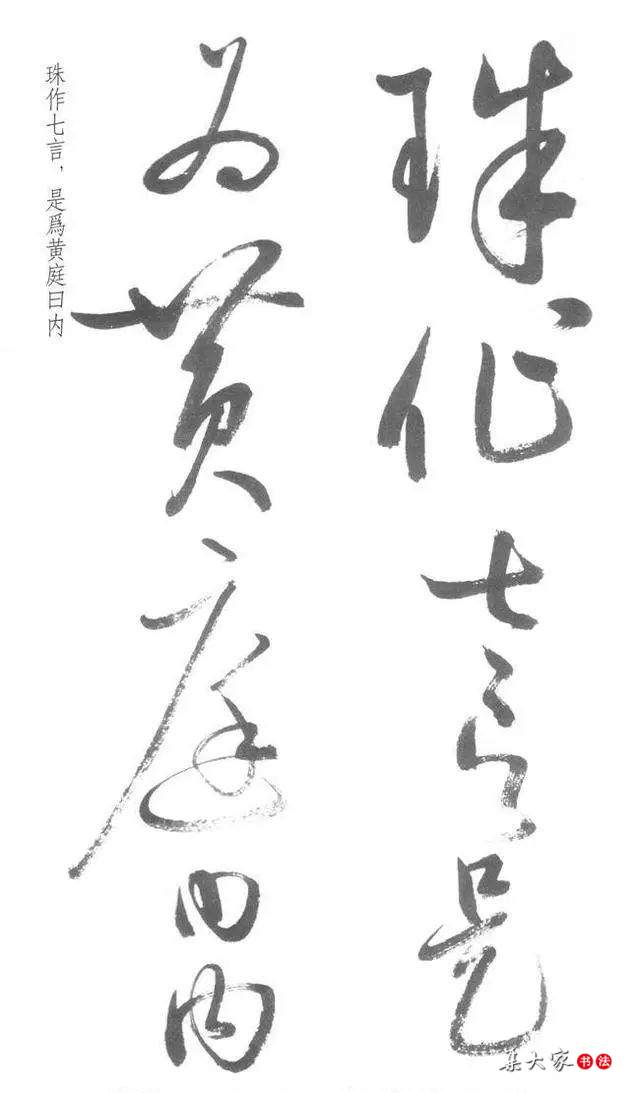 珠作七言是
为黄庭曰内
珠作七言，是爲黄庭曰内
集大家书法